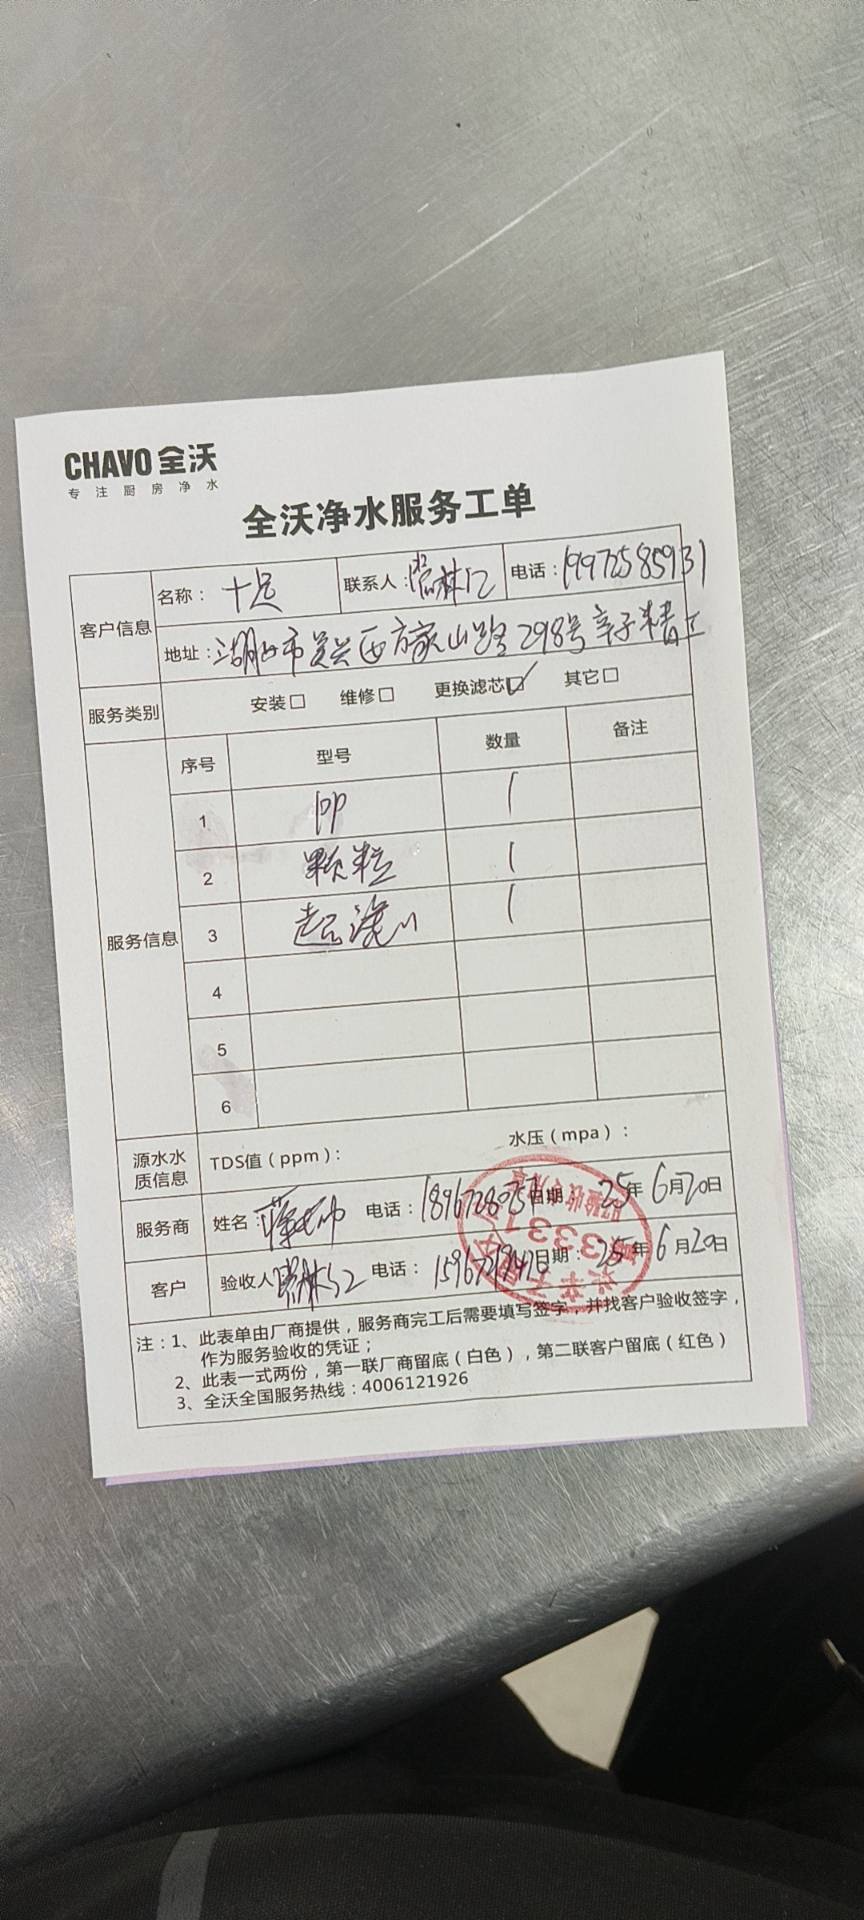 CHAVO 全沃
专注厨房净水
全沃净水服务工单
客户信息 名称： 十足 联系人： 电话：19972585931
地址：湖州市吴兴区方家山路298号
服务类别 安装□ 维修□ 更换滤芯☑ 其它□
服务信息 序号 型号 数量 备注
1 PP 1
2 颗粒 1
3 超滤 1
4
5
6
源水水质信息 TDS值（ppm）： 水压（mpa）：
服务商 姓名： 电话： 日期：25年6月20日
客户 验收人 电话： 日期：25年6月20日
注：1、此表单由厂商提供，服务商完工后需要填写签字，并找客户验收签字，
作为服务验收的凭证；
2、此表一式两份，第一联厂商留底（白色），第二联客户留底（红色）
3、全沃全国服务热线：4006121926
3331